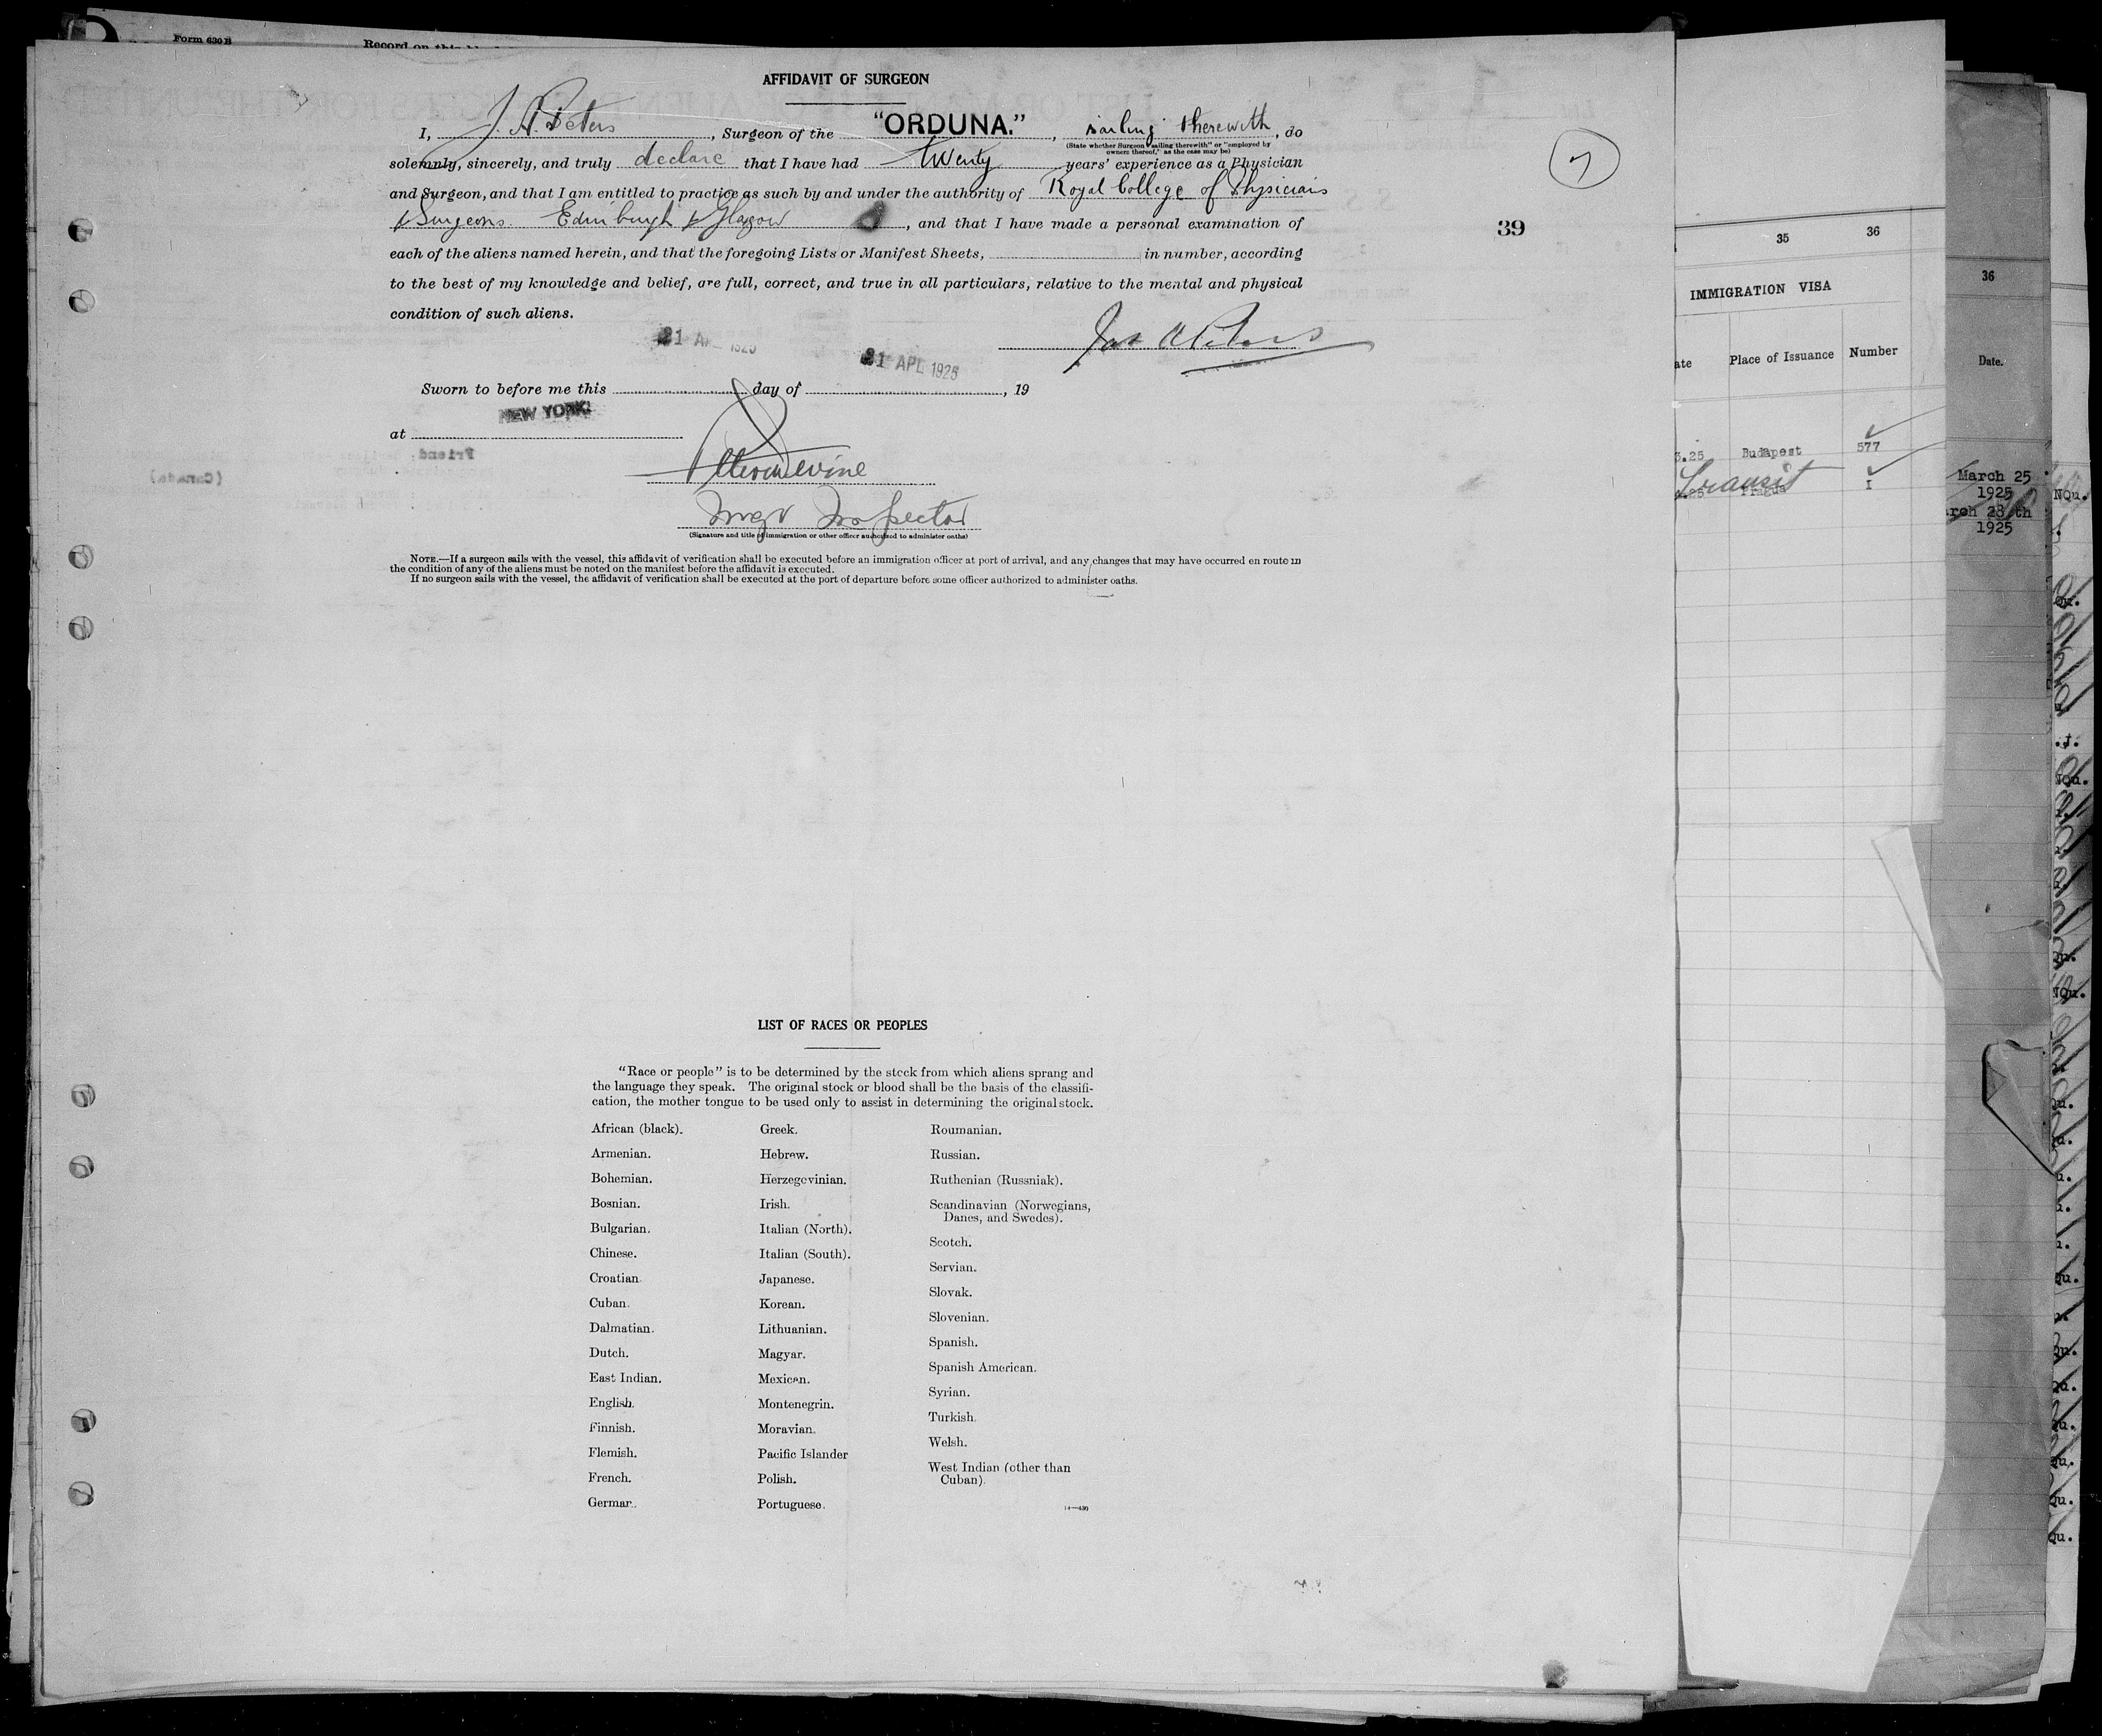 Form 630 B
Record on this bl
AFFIDAVIT OF SURGEON
I, J. A. Peters, Surgeon of the "ORDUNA.", sailing therewith, do
(State whether Surgeon "sailing therewith" or "employed by
owners thereof," as the case may be)
solemnly, sincerely, and truly declare that I have had twenty years' experience as a Physician
and Surgeon, and that I am entitled to practice as such by and under the authority of Royal College of Physicians
& Surgeons. Edinburgh & Glasgow, and that I have made a personal examination of
each of the aliens named herein, and that the foregoing Lists or Manifest Sheets, in number, according
to the best of my knowledge and belief, are full, correct, and true in all particulars, relative to the mental and physical
condition of such aliens.
Jas A Peters
21 APL 1925
21 APL 1925
Sworn to before me this day of , 19
NEW YORK
at
Immgr Inspector
(Signature and title of immigration or other officer authorized to administer oaths)
NOTE.—If a surgeon sails with the vessel, this affidavit of verification shall be executed before an immigration officer at port of arrival, and any changes that may have occurred en route in
the condition of any of the aliens must be noted on the manifest before the affidavit is executed.
If no surgeon sails with the vessel, the affidavit of verification shall be executed at the port of departure before some officer authorized to administer oaths.
7
39
LIST OF RACES OR PEOPLES
"Race or people" is to be determined by the stock from which aliens sprang and
the language they speak. The original stock or blood shall be the basis of the classifi-
cation, the mother tongue to be used only to assist in determining the original stock.
African (black).
Armenian.
Bohemian.
Bosnian.
Bulgarian.
Chinese.
Croatian.
Cuban.
Dalmatian.
Dutch.
East Indian.
English.
Finnish.
Flemish.
French.
German.
Greek.
Hebrew.
Herzegovinian.
Irish.
Italian (North).
Italian (South).
Japanese.
Korean.
Lithuanian.
Magyar.
Mexican.
Montenegrin.
Moravian.
Pacific Islander
Polish.
Portuguese.
Roumanian.
Russian.
Ruthenian (Russniak).
Scandinavian (Norwegians,
Danes, and Swedes).
Scotch.
Servian.
Slovak.
Slovenian.
Spanish.
Spanish American.
Syrian.
Turkish.
Welsh.
West Indian (other than
Cuban).
14—430
35 36
IMMIGRATION VISA
ate Place of Issuance Number
3.25 Budapest 577
Transit
.25 Pragua I
36
Date.
March 25
1925
arch 28 th
1925
NQu.
Qu.
NQu.
NQu.